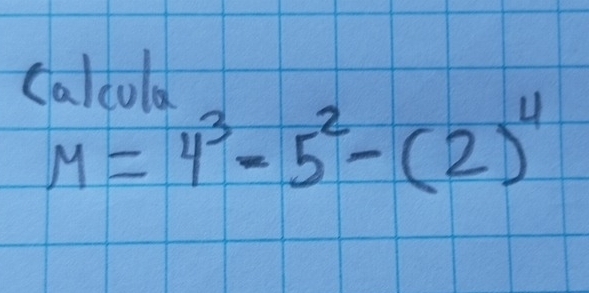 Calcula
M = 4³ - 5² - (2)⁴